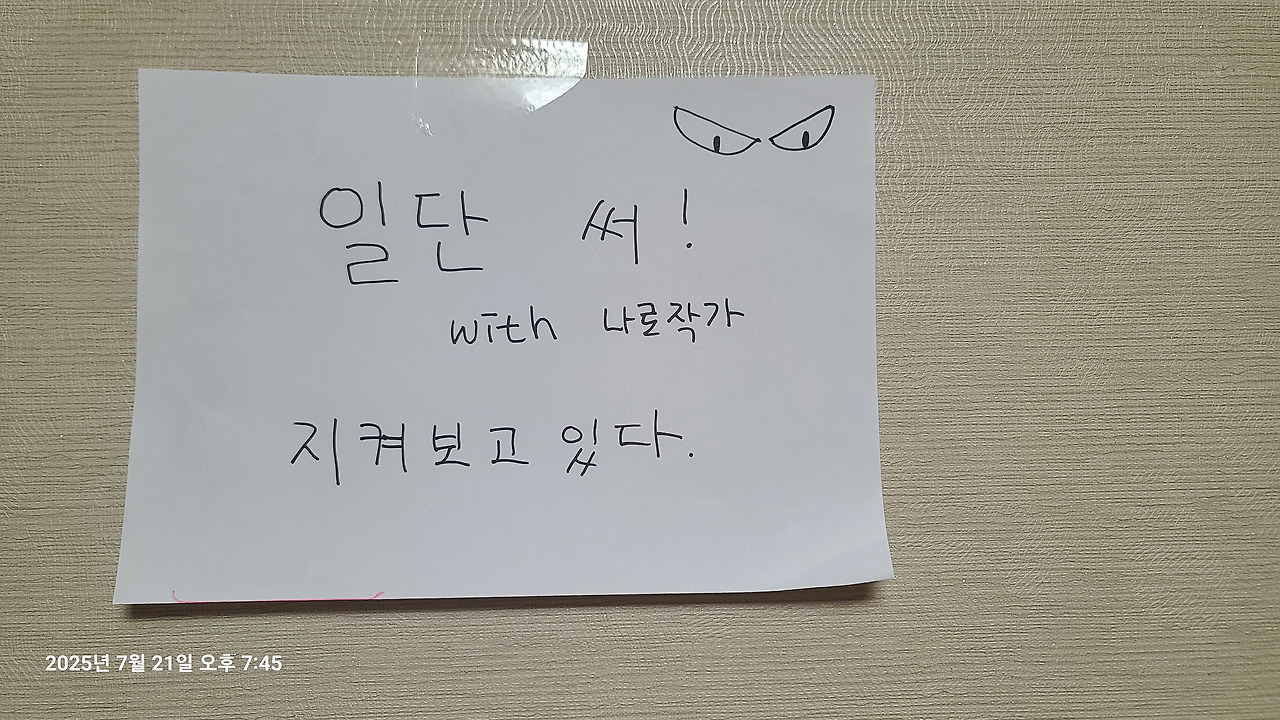 일단 써!
with 나로작가
지켜보고 있다.
2025년 7월 21일 오후 7:45